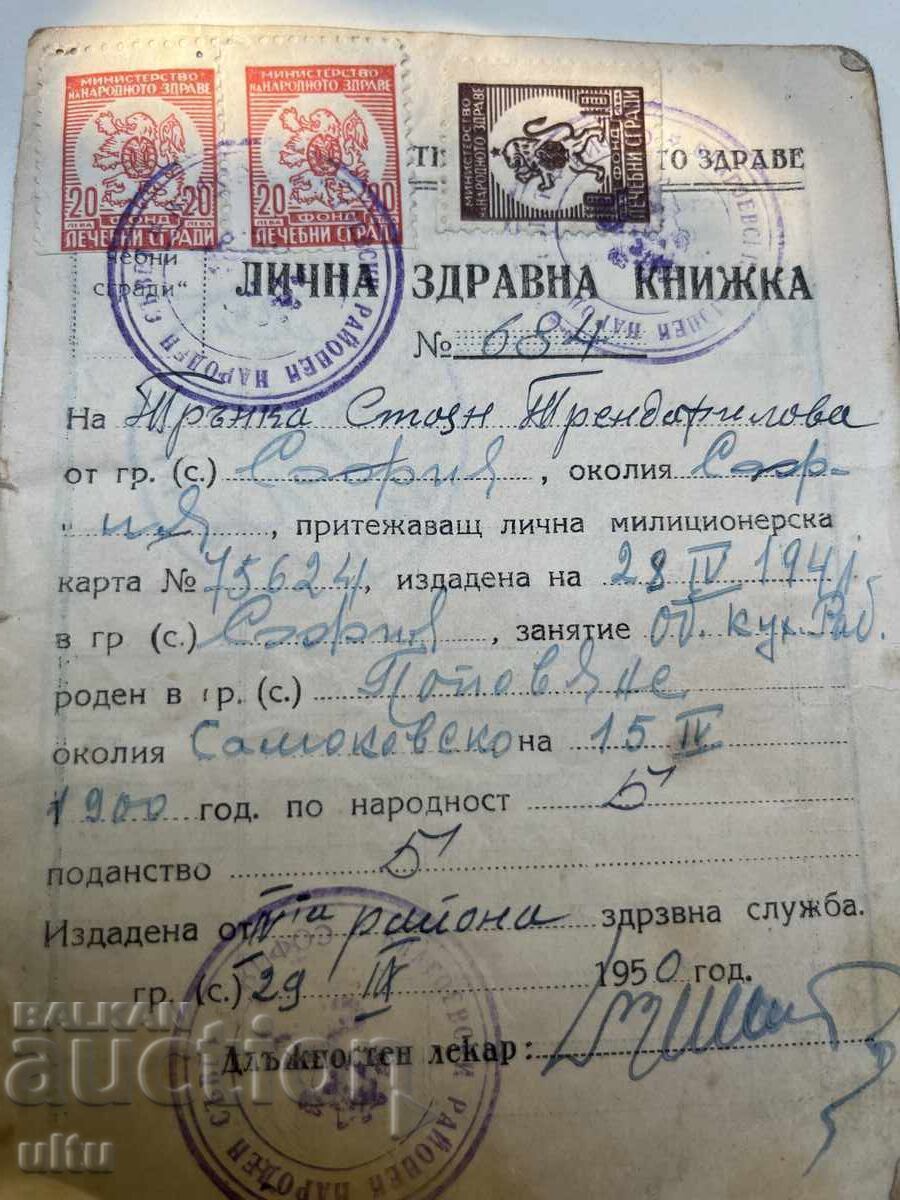 МИНИСТЕРСТВО НА НАРОДНОТО ЗДРАВЕ
20 ЛЕВА 20
ФОНД
ЛЕЧЕБНИ СГРАДИ
МИНИСТЕРСТВО НА НАРОДНОТО ЗДРАВЕ
20 ЛЕВА 20
ФОНД
ЛЕЧЕБНИ СГРАДИ
МИНИСТЕРСТВО НА НАРОДНОТО ЗДРАВЕ
ФОНД
ЛЕЧЕБНИ СГРАДИ
ТО ЗДРАВЕ
чебни
сгради"
РАЙОНЕН НАРОДЕН СЪВЕТ
ЛИЧНА ЗДРАВНА КНИЖКА
№ 684
На Трънка Стоян Трендафилова
от гр. (с.) София, околия Соф-
ия, притежаващ лична милиционерска
карта № 75624, издадена на 28 IV 194
в гр (с.) София, занятие Об. кух. Раб.
роден в гр. (с.) Поповяне
околия Самоковско на 15 IV
1900 год. по народност Б
поданство Б
Издадена от IV та района здрзвна служба.
гр. (с.) 29 IX 1950 год.
Длъжностен лекар:
СОФИЯ РАЙОНЕН НАРОДЕН СЪВЕТ
BALKAN
auction
ulftu